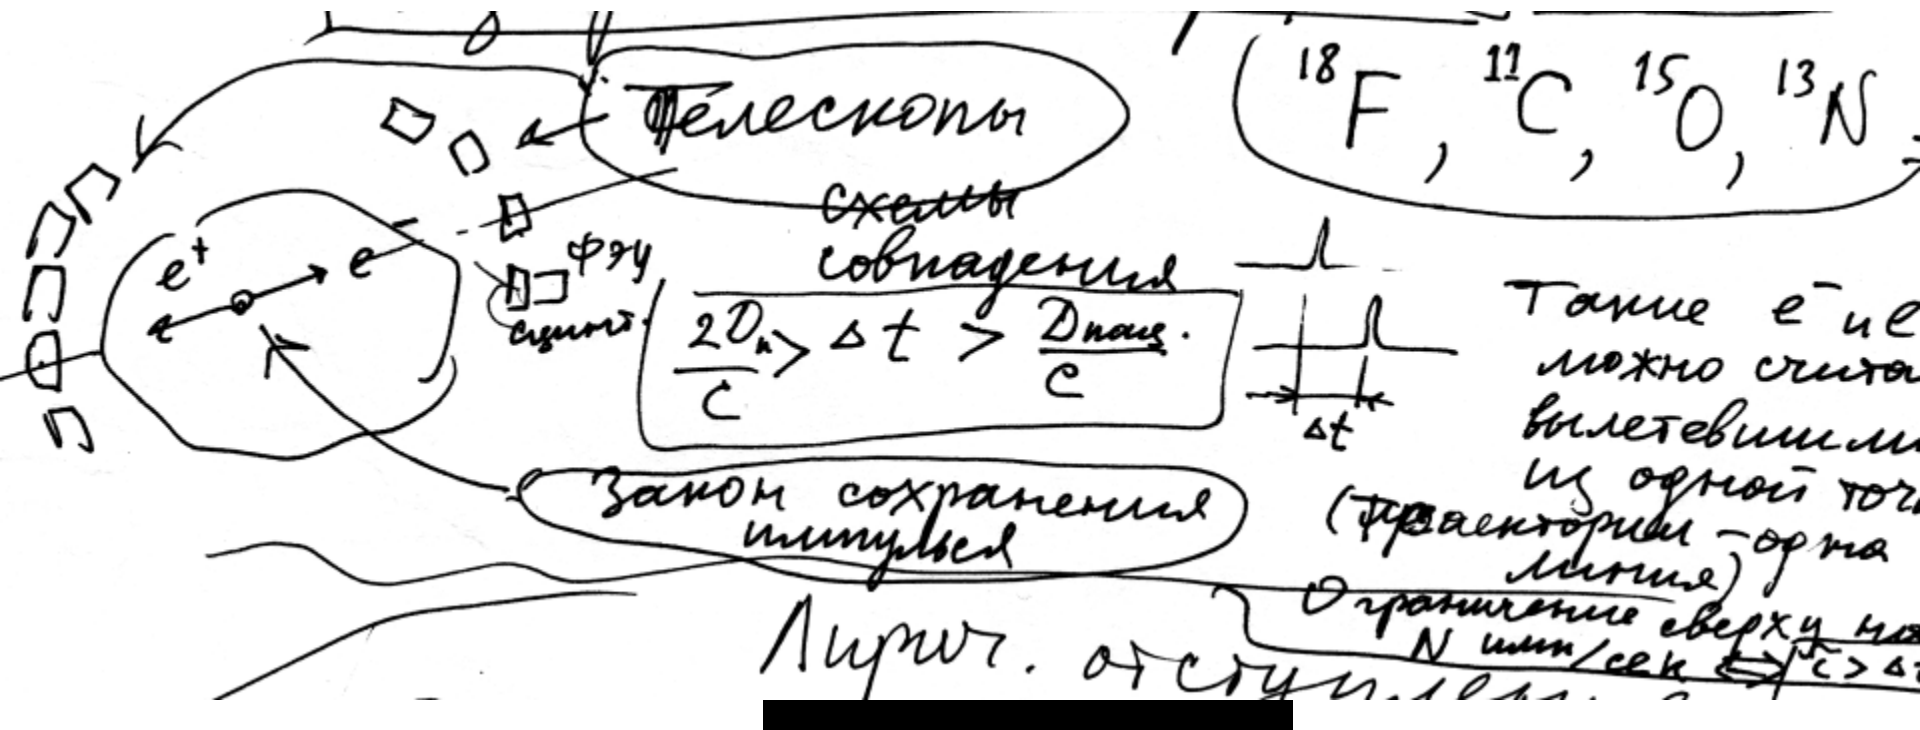 Телескопы
18F, 11C, 15O, 13N,
схемы
совпадения
e+
e-
ФЭУ
сцинт.
2Dп/C > Δt > Dпац./C
Δt
Такие e- и e
можно счита
вылетевшими
из одной точ
(траектории - одна
линия)
Закон сохранения
импульса
Ограничение сверху на
N имп/сек ⇔ τ > Δt
Лирич. отступлен